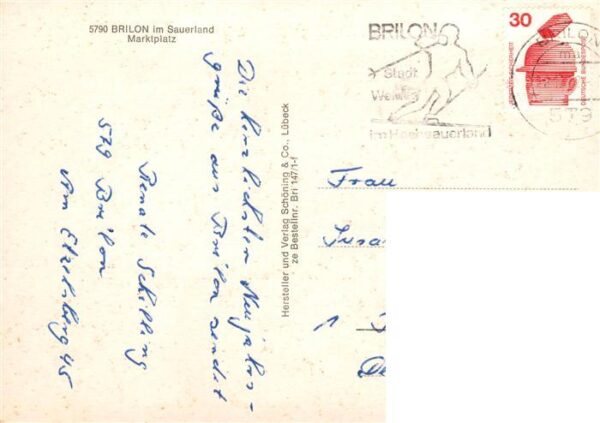 5790 BRILON im Sauerland
Marktplatz
Die herzlichsten Neujahrs-
grüße aus Brilon sendet
Renate Schilling
579 Brilon
Am Etzelsberg 45
Hersteller und Verlag Schöning & Co., Lübeck
ze Bestellnr. Bri 147/1-f
BRILON
Stadt
im Hochsauerland
30
DEUTSCHE BUNDESPOST
BRILON
579
Frau
Susa
1